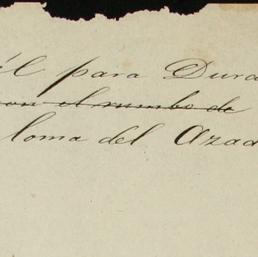 él para Dura
con el rumbo de
loma del Azad